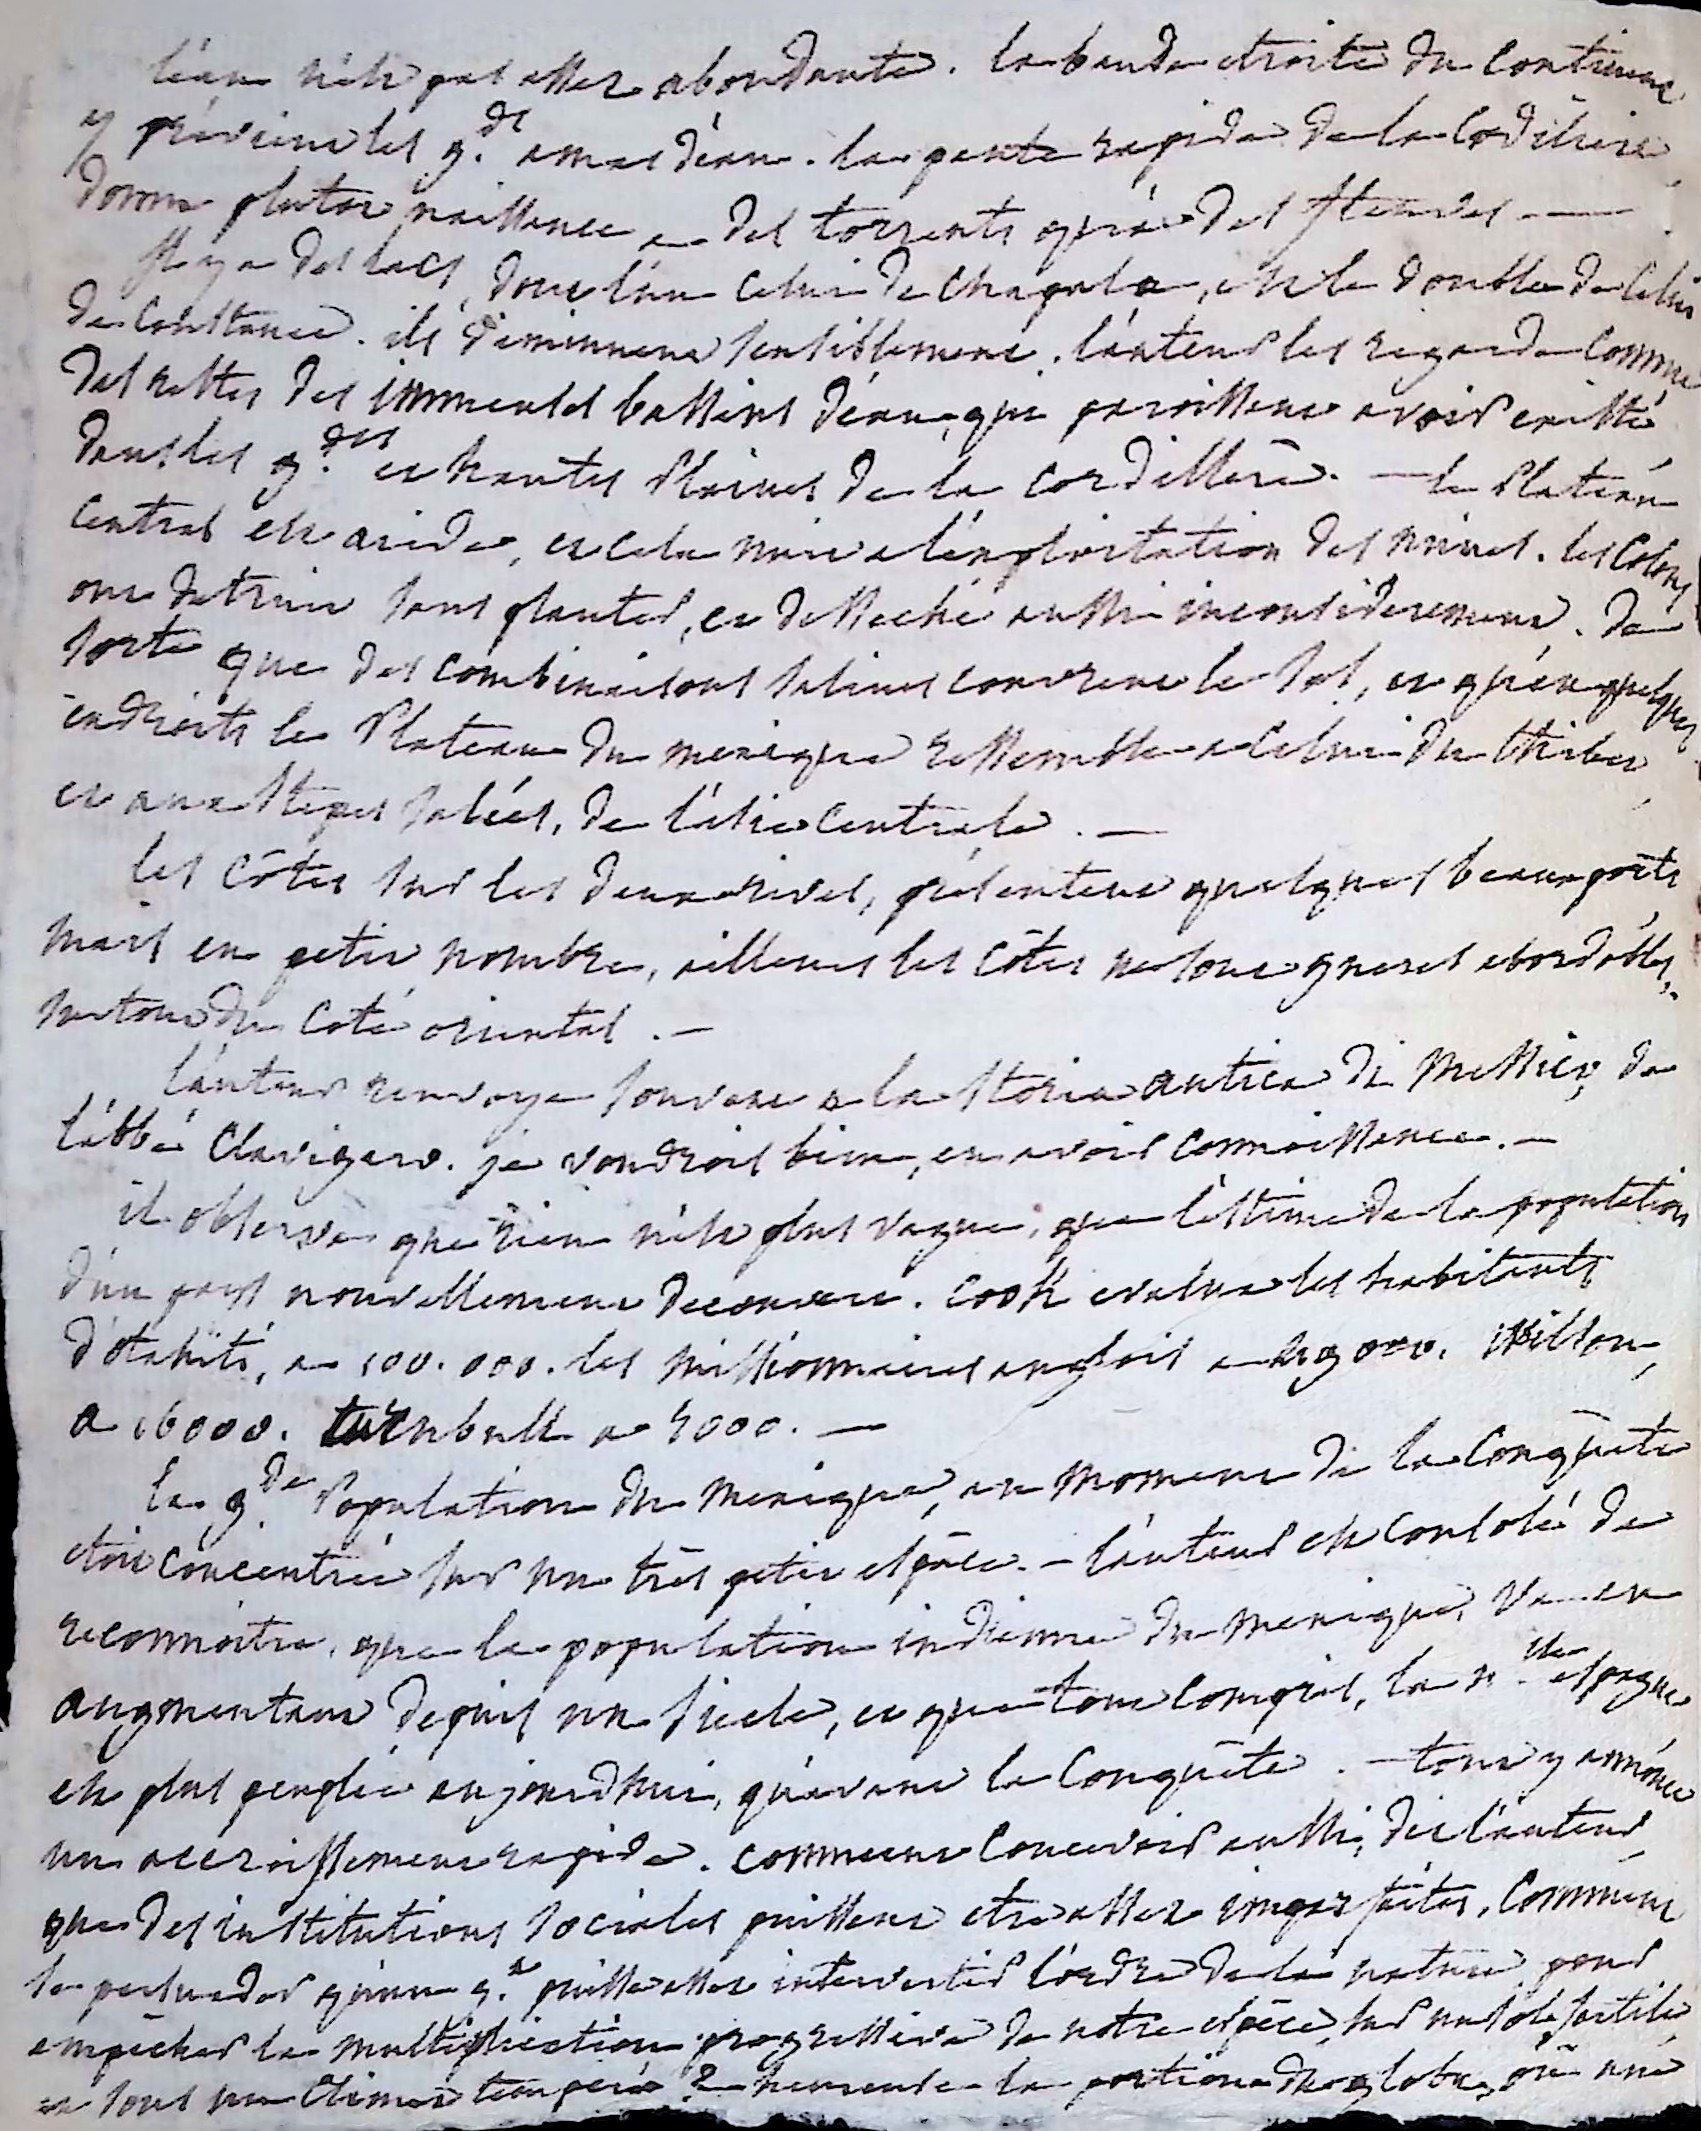 l'eau n'est pas assez abondante. la bande etroite du continent
y prévient les g.ds amas d'eau. la pente rapide de la Cordiliere
donne plutot naissance a des torrents qu'à des fleuves —
Il y a des lacs, dont l'un celui de Chapala, est le double de celui
de Constance. ils diminuent sensiblement. l'auteur les regarde comme
des restes des immenses bassins d'eau, qui paroissent avoir existé
dans les g.des et hautes Plaines de la cordillère. — le Plateau
central est aride, et cela nuit a l'exploitation des mines. les Colons
ont detruit sans planter, et desseché aussi inconsiderement. de
sorte que des combinaisons salines couvrent le sol, et qu'en quelques
endroits le Plateau du mexique ressemble a celui du thibet
et aux stepes salées, de l'asie centrale. —
les côtes sur les deux rives, présentent quelques beaux ports
mais en petit nombre, ailleurs les côtes ne sont gueres abordables,
surtout du coté oriental. —
l'auteur renvoye souvent a la storia antica di Messico, de
l'abbé Clavigero. je voudrois bien, en avoir connoissance. —
il observe que rien n'est plus vague, que l'estime de la population
d'un pays nouvellement decouvert. cook evalua les habitants
d'otahiti, a 100.000. les missionnaires anglois a 49000. Wilson,
a 16000. turnbull a 5000. —
la g.de Population du mexique, au moment de la Conquête
etoit concentrée sur un très petit espace. — l'auteur est consolé de
reconnoitre, que la population indienne du mexique, va en
augmentant depuis un siecle, et que tout compris, la n.lle espagne
est plus peuplée aujourdhui, qu'avant la Conquête. — tout y annonce
un accroissement rapide. comment concevoir aussi, dit l'auteur,
que des institutions sociales puissent etre assez imparfaites, comment
se persuader qu'un g.t puisse assez intervertir l'ordre de la nature pour
empêcher la multiplication progressive de notre espèce, sur un sol fertile
et sous un climat temperé ? heureuse la portion du globe, où une